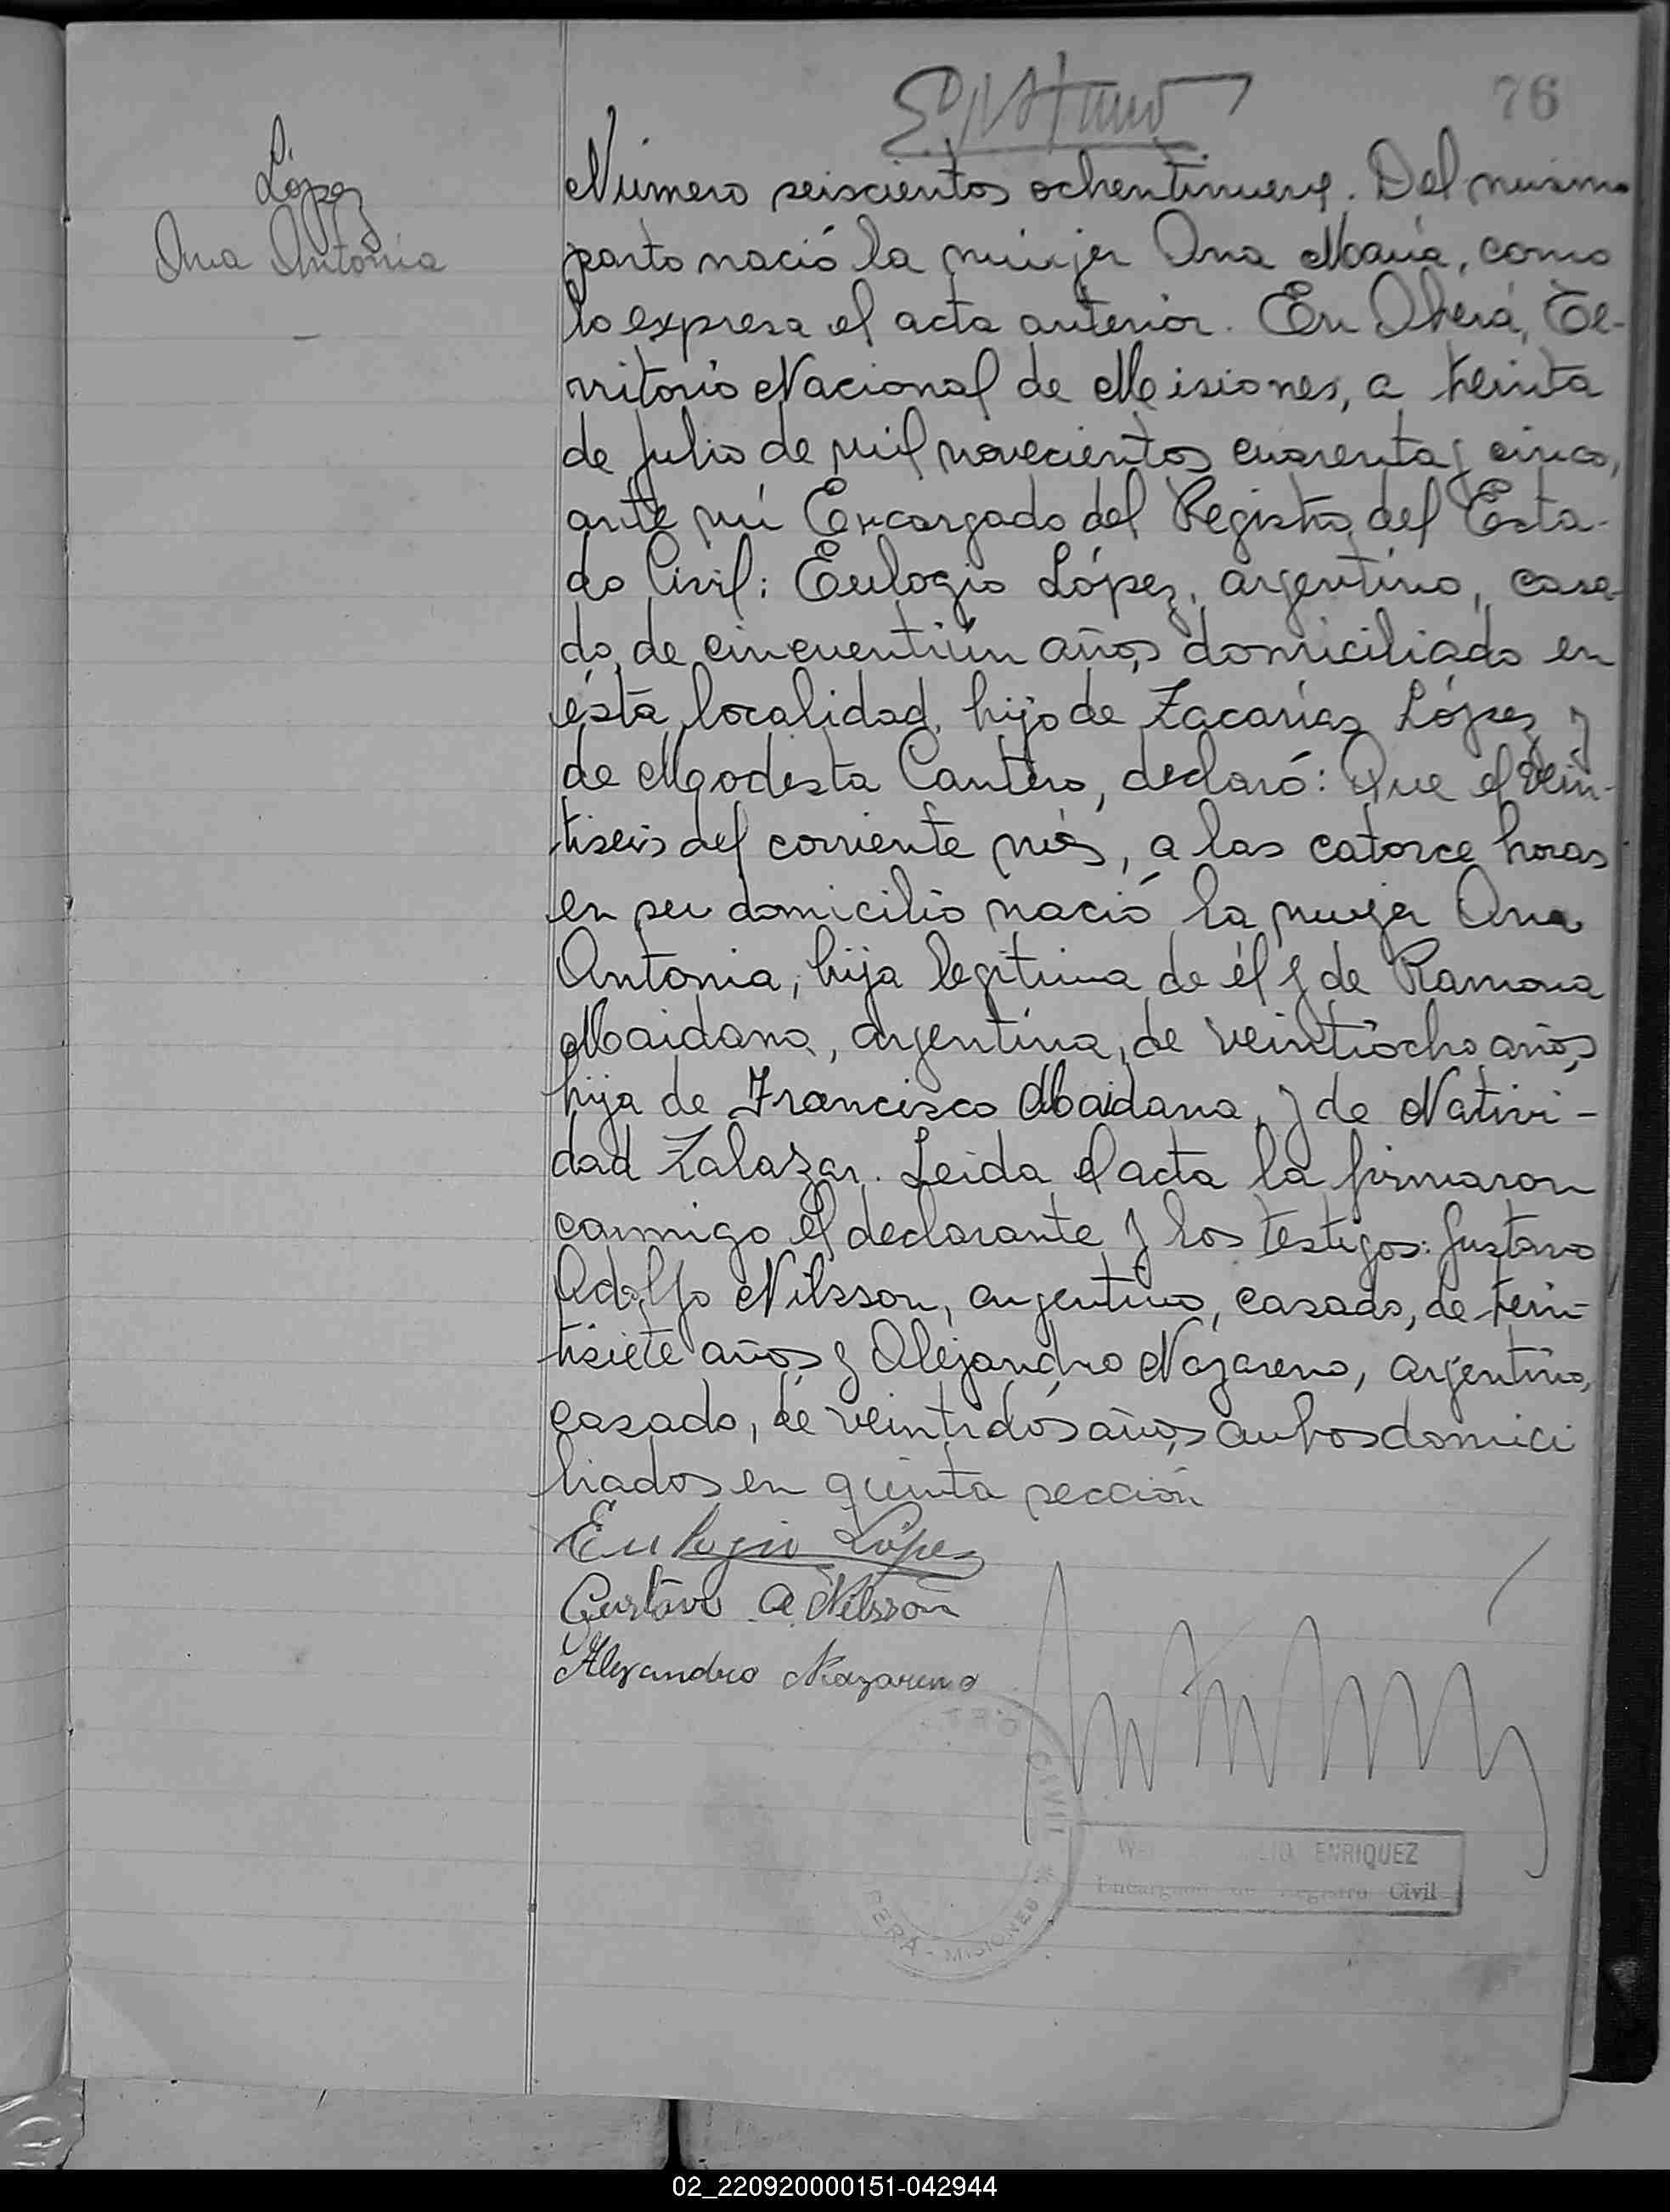 76
López
Ana Antonia
Número seiscientos ochentinueve. Del mismo
parto nació la mujer Ana María, como
lo expresa el acta anterior. En Oberá, Te-
rritorio Nacional de Misiones, a treinta
de julio de mil novecientos cuarenta y cinco,
ante mí Encargado del Registro del Esta-
do Civil: Eulogio López, argentino, casa-
do, de cincuentiún años domiciliado en
ésta localidad, hijo de Zacarías López y
de Modesta Cantero, declaró: Que el vein-
tiseis del corriente més, a las catorce horas
en su domicilio nació la mujer Ana
Antonia, hija legítima de él y de Ramona
Maidana, argentina, de veintiocho años,
hija de Francisco Maidana, y de Nativi-
dad Zalazar. Leida el acta la firmaron
conmigo el declarante y los testigos: Gustavo
Adolfo Nilsson, argentino, casado, de trein-
tisiete años y Alejandro Nazareno, argentino,
casado, de veintidós años, ambos domici
liados en quinta sección
Eulogio López
Gustavo A. Nilsson
Alejandro Nazareno
CIVIL *
ERÁ - MISIONES
LIO ENRIQUEZ
Encargado de Registro Civil
02_220920000151-042944